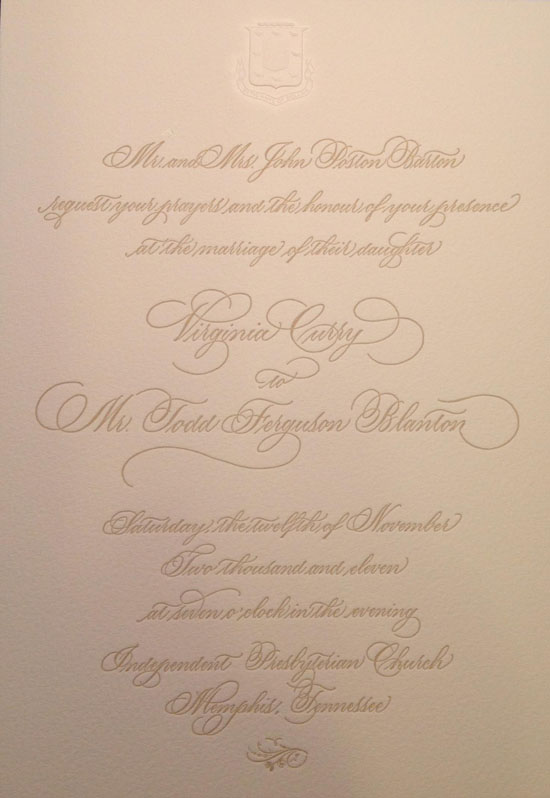 Mr. and Mrs. John Poston Barton
request your prayers and the honour of your presence
at the marriage of their daughter
Virginia Curry
to
Mr. Todd Ferguson Blanton
Saturday, the twelfth of November
Two thousand and eleven
at seven o'clock in the evening
Independent Presbyterian Church
Memphis, Tennessee